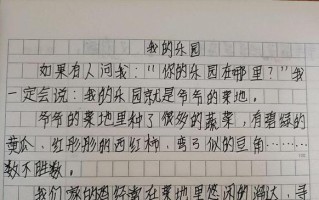 我的乐园
如果有人问我："你的乐园在哪里？"我
一定会说：我的乐园就是爷爷的菜地。
爷爷的菜地里种了很多的蔬菜，有碧绿的
黄瓜、红彤彤的西红柿、弯弓似的豆角……
数不胜数。
我们 经常在菜地里悠闲的溜达，寻